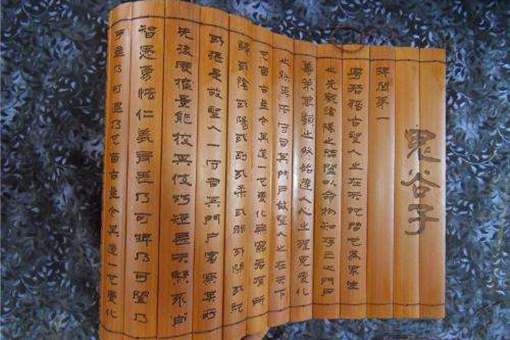 鬼谷子
捭闔第一
粵若稽古聖人之在天地間也為眾生
之先觀陰陽之開闔以命物知存亡之門戶
籌策萬類之終始達人心之理見變化
之朕焉而守司其門戶故聖人之在天下
也自古至今其道一也變化無窮各有所
歸或陰或陽或柔或剛或開或閉或弛
或張是故聖人一守司其門戶審察其所
先後度權量能校其伎巧短長夫賢不肖
智愚勇怯仁義有差乃可捭乃可闔乃
乃可 也自古至今其道一也變化